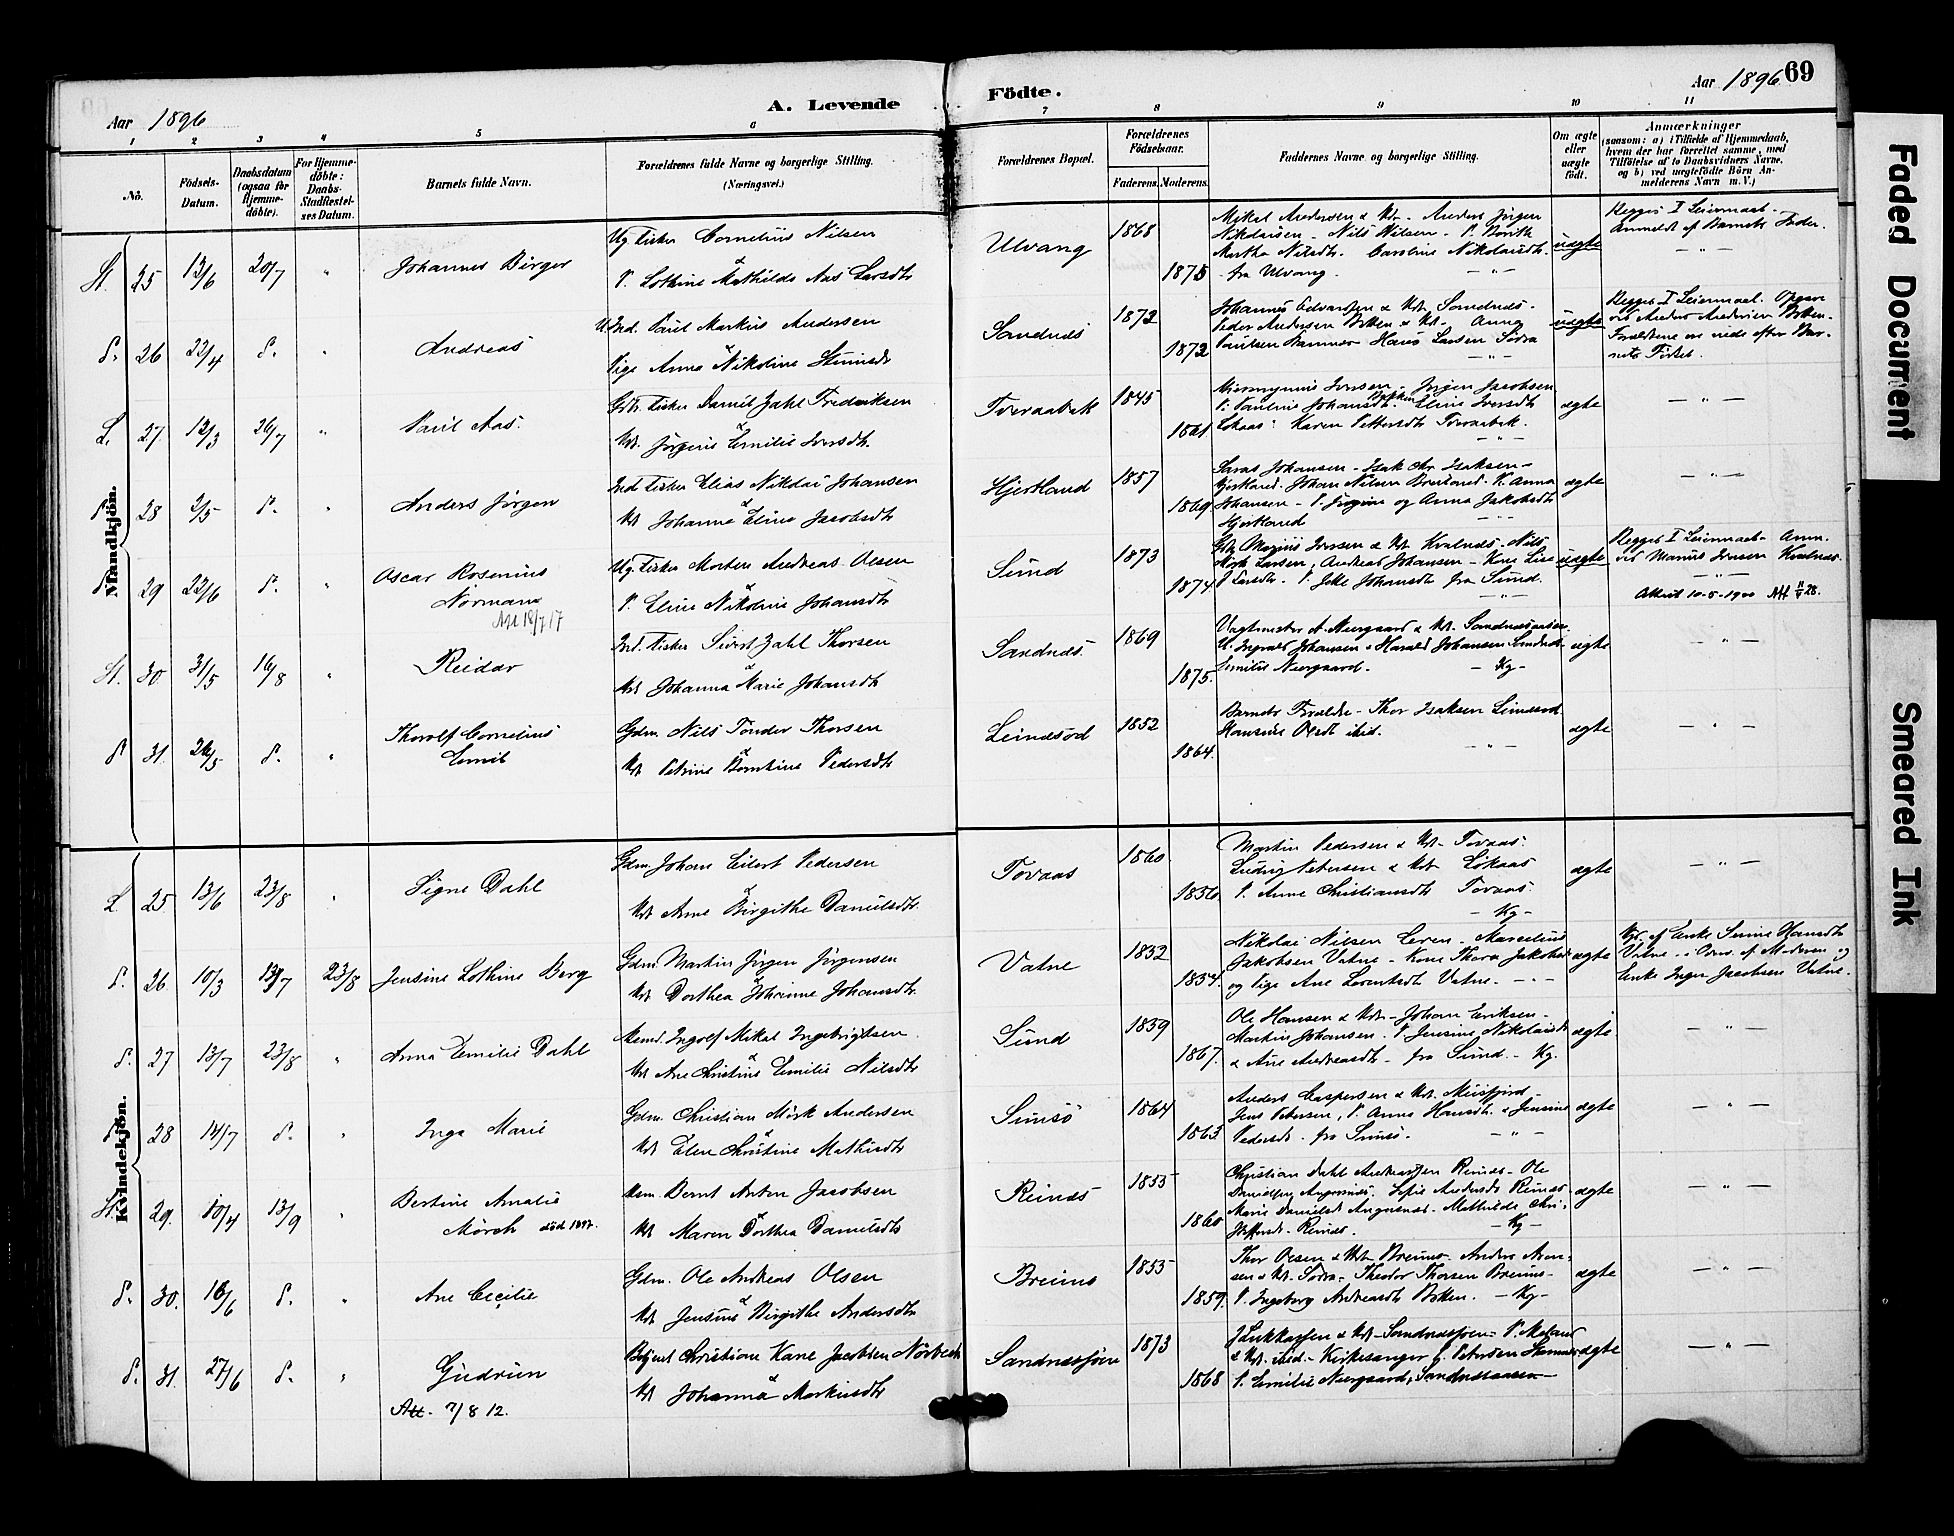 Aar 1896
A. Levende Födte.
Aar 1896 69
1 2 3 4 5 6 7 8 9 10 11
No.
Födsels-Datum.
Daabsdatum (ogsaa for Hjemme-döbte).
For Hjemme-döbte: Daabs-Stadfæstel-ses Datum.
Barnets fulde Navn.
Forældrenes fulde Navne og borgerlige Stilling. (Næringsvei.)
Forældrenes Bopæl.
Forældrenes Födselsaar.
Faderens. Moderens.
Faddernes Navne og borgerlige Stilling.
Om ægte eller uægte födt.
Anmærkninger
(saasom: a) i Tilfælde af Hjemmedaab, hvem der har forrettet samme, med Tilföielse af to Daabsvidners Navne, og b) ved uægtefödte Börn An-melderens Navn m. V.)
Mandkjön.
St. 25 13/6 20/7 " Johannes Birger
Ug. Fisker Cornelius Nilsen
P. Lothine Mathilde Aas Larsdtr
Ulvang 1868 1875
Mikal Andersen & Kt. Anders Jörgen
Nikolaisen - Nils Nilsen - P. Berith
Martha Nilsdtr. Caroline Nikolaisdtr.
fra Ulvang. - " -
uægte
Begges I Leiermaal.
Anmeldt af Barnets Fader.
- " -
26 22/4 " Andreas
U. Ind. Paul Markus Andersen
Pige Anna Nikoline
Sandnes 1872 1872
Johannes Edvardsen & Kt. Sandnes.
Peder Andersen Botten & Kt. Anna
Paulsen Hans Larsen Södra
- " -
uægte
Begges I Leiermaal. Opgave
ved Anders Andersen Botten.
Forældrene ere viede efter Bar-
nets Födsel.
L. 27 12/3 26/7 " Paul Aas.
Gbr. Fisker Daniel Zahl Fredriksen
Kt. Jörgine Emilie Iversdtr.
Tveraabak 1845 1861
Hieronymus Iversen - Jörgen Jacobsen
P. Pauline Johansdtr. Botten Eline Iversdtr
Lökaas. Karen Pettersdtr Tveraabak.
- " -
ægte - " -
28 2/5 " Anders Jörgen
Ind. Fisker Elias Nikolai Johansen
Kt Johanna Eline Jacobsdtr
Hjertland 1857 1869
Johansen - Isak Chr. Isaksen -
Hjertland. Johan Nilsen P. Anna
Johansen - P. Jörgine og Anna Jakobsdtr
Hjertland - " -
ægte - " -
29 22/6 " Oscar Rosenius
Normann
Att 18/7 17
Ug. Fisker Morten Andreas Olsen
P. Eline Nikoline Johansdtr
Sund 1873 1874
Gbr. Marius Iversen & Kt Kvalnes. Nils
Mörk Larsen, Andreas Johansen - Kone Lise
Larsdtr. P. Johansdtr fra Sund.
- " -
uægte
Begges I Leiermaal - Anm.
ved Marius Iversen Kvalnes.
- " -
Attest 10-5-1900 Att 11/5 28.
St. 30 31/5 16/8 " Reidar
Ind. Fisker Sivert Zahl Thorsen
Kt Johanna Marie Johansdtr
Sandnes 1869 1875.
Vagtmester A. Neergaard & Kt. Sandnessöen
U. Ingvald Johansen & Harald Johansen Sandnes
Emilie Neergaard. - Kg -
ægte - " -
31. 26/5 " Thorolf Cornelius
Emil
Gdm. Nils Tönder Thorsen
Kt Petrine Berntine Pedersdtr
Leinesöd 1852 1864.
Barnets Forældre - Thor Isaksen
Hansine Olsdtr ibid.
- " -
ægte - " -
Kvindekjön.
L 25 13/6 23/8 " Signe Dahl
Gdm. Johan Eilert Pedersen
Kt Anne Birgithe Danielsdtr.
Tovaas 1860 1856.
Martin Pedersen & Kt - Tovaas.
Ludvig Petersen & Kt Lökaas
P. Anne Christiansdtr Tovaas.
- Kg -
ægte - " -
26. 10/3 13/7 23/8 Jensine Lothine Berg
Gdm. Martin Jörgen Jörgensen
Kt Dorthea Johanne Johansdtr.
Vatne 1852 1854.
Nikolai Nilsen Leren - Marcelius
Jakobsen Vatne - Kone Thora Jakobsd
og Pige Ane Lorentsdtr Vatne. - " -
ægte
Hjd. af Enke Serine Hansdtr
Vatne. - Ovrv. af Moderen og
Enke Inger Jacobsen Vatne.
27 13/7 23/8 " Anna Emilie Dahl
Ingolf Mikal Ingebrigtsen
Kt Ane Christine Emilie Nilsdtr
Sund 1859 1867.
Ole Hansen & Kt. - Johan Eriksen -
Martin Johansen. P. Jensine Nikolaisdtr
& Ane Andreasdtr - fra Sund. - Kg.
ægte. - " -
28 14/7 " Inga Marie
Gdm. Christian Mörk Andersen
Kt Elen Christine Mathisdtr
Sunsö 1864 1863.
Anders Caspersen & Kt. Meisfjord
Jens Petersen, P. Anna Hansdtr. & Jensine
Pedersdtr. fra Sunsö. - " -
ægte - " -
St. 29. 10/4 13/9 " Bertine Amalie
Mörch död 1897.
Bernt Anton Jacobsen
Kt Maren Dorthea Danielsdtr
Reines 1855 1860
Christian Dahl Andreassen Reines - Ole
Danielsen Angersnes. Sofie Andersdtr Reines
Marie Danielsdtr Angersnes. Mathilde Chri-
stoffersdtr - Reines. - Kg -
ægte - " -
30. 16/6 " Ane Cecilie
Gdm. Ole Andreas Olsen
Kt Jensine Birgithe Andersdtr
Breimo 1855 1859.
Thor Olsen & Kt Breimo - Anders Aron-
sen & Kt. Södra - Theodor Thorsen Breimo -
P. Ingeborg Andreasdtr Botten. - Kg -
ægte - " -
31. 27/6 " Gudrun
Att. 7/8 12.
Betjent Christian Kane Jacobsen Norbeck
Kt Johanna Markusdtr
Sandnessjöen 1873 1868
J Lukkassen & Kt - Sandnessjöen - P.
& Kt. ibid. - Kirkesanger G. Petersen Stamnes
P. Emilie Neergaard, Sandnessöen -
ægte - " -
Faded Document
Smeared Ink